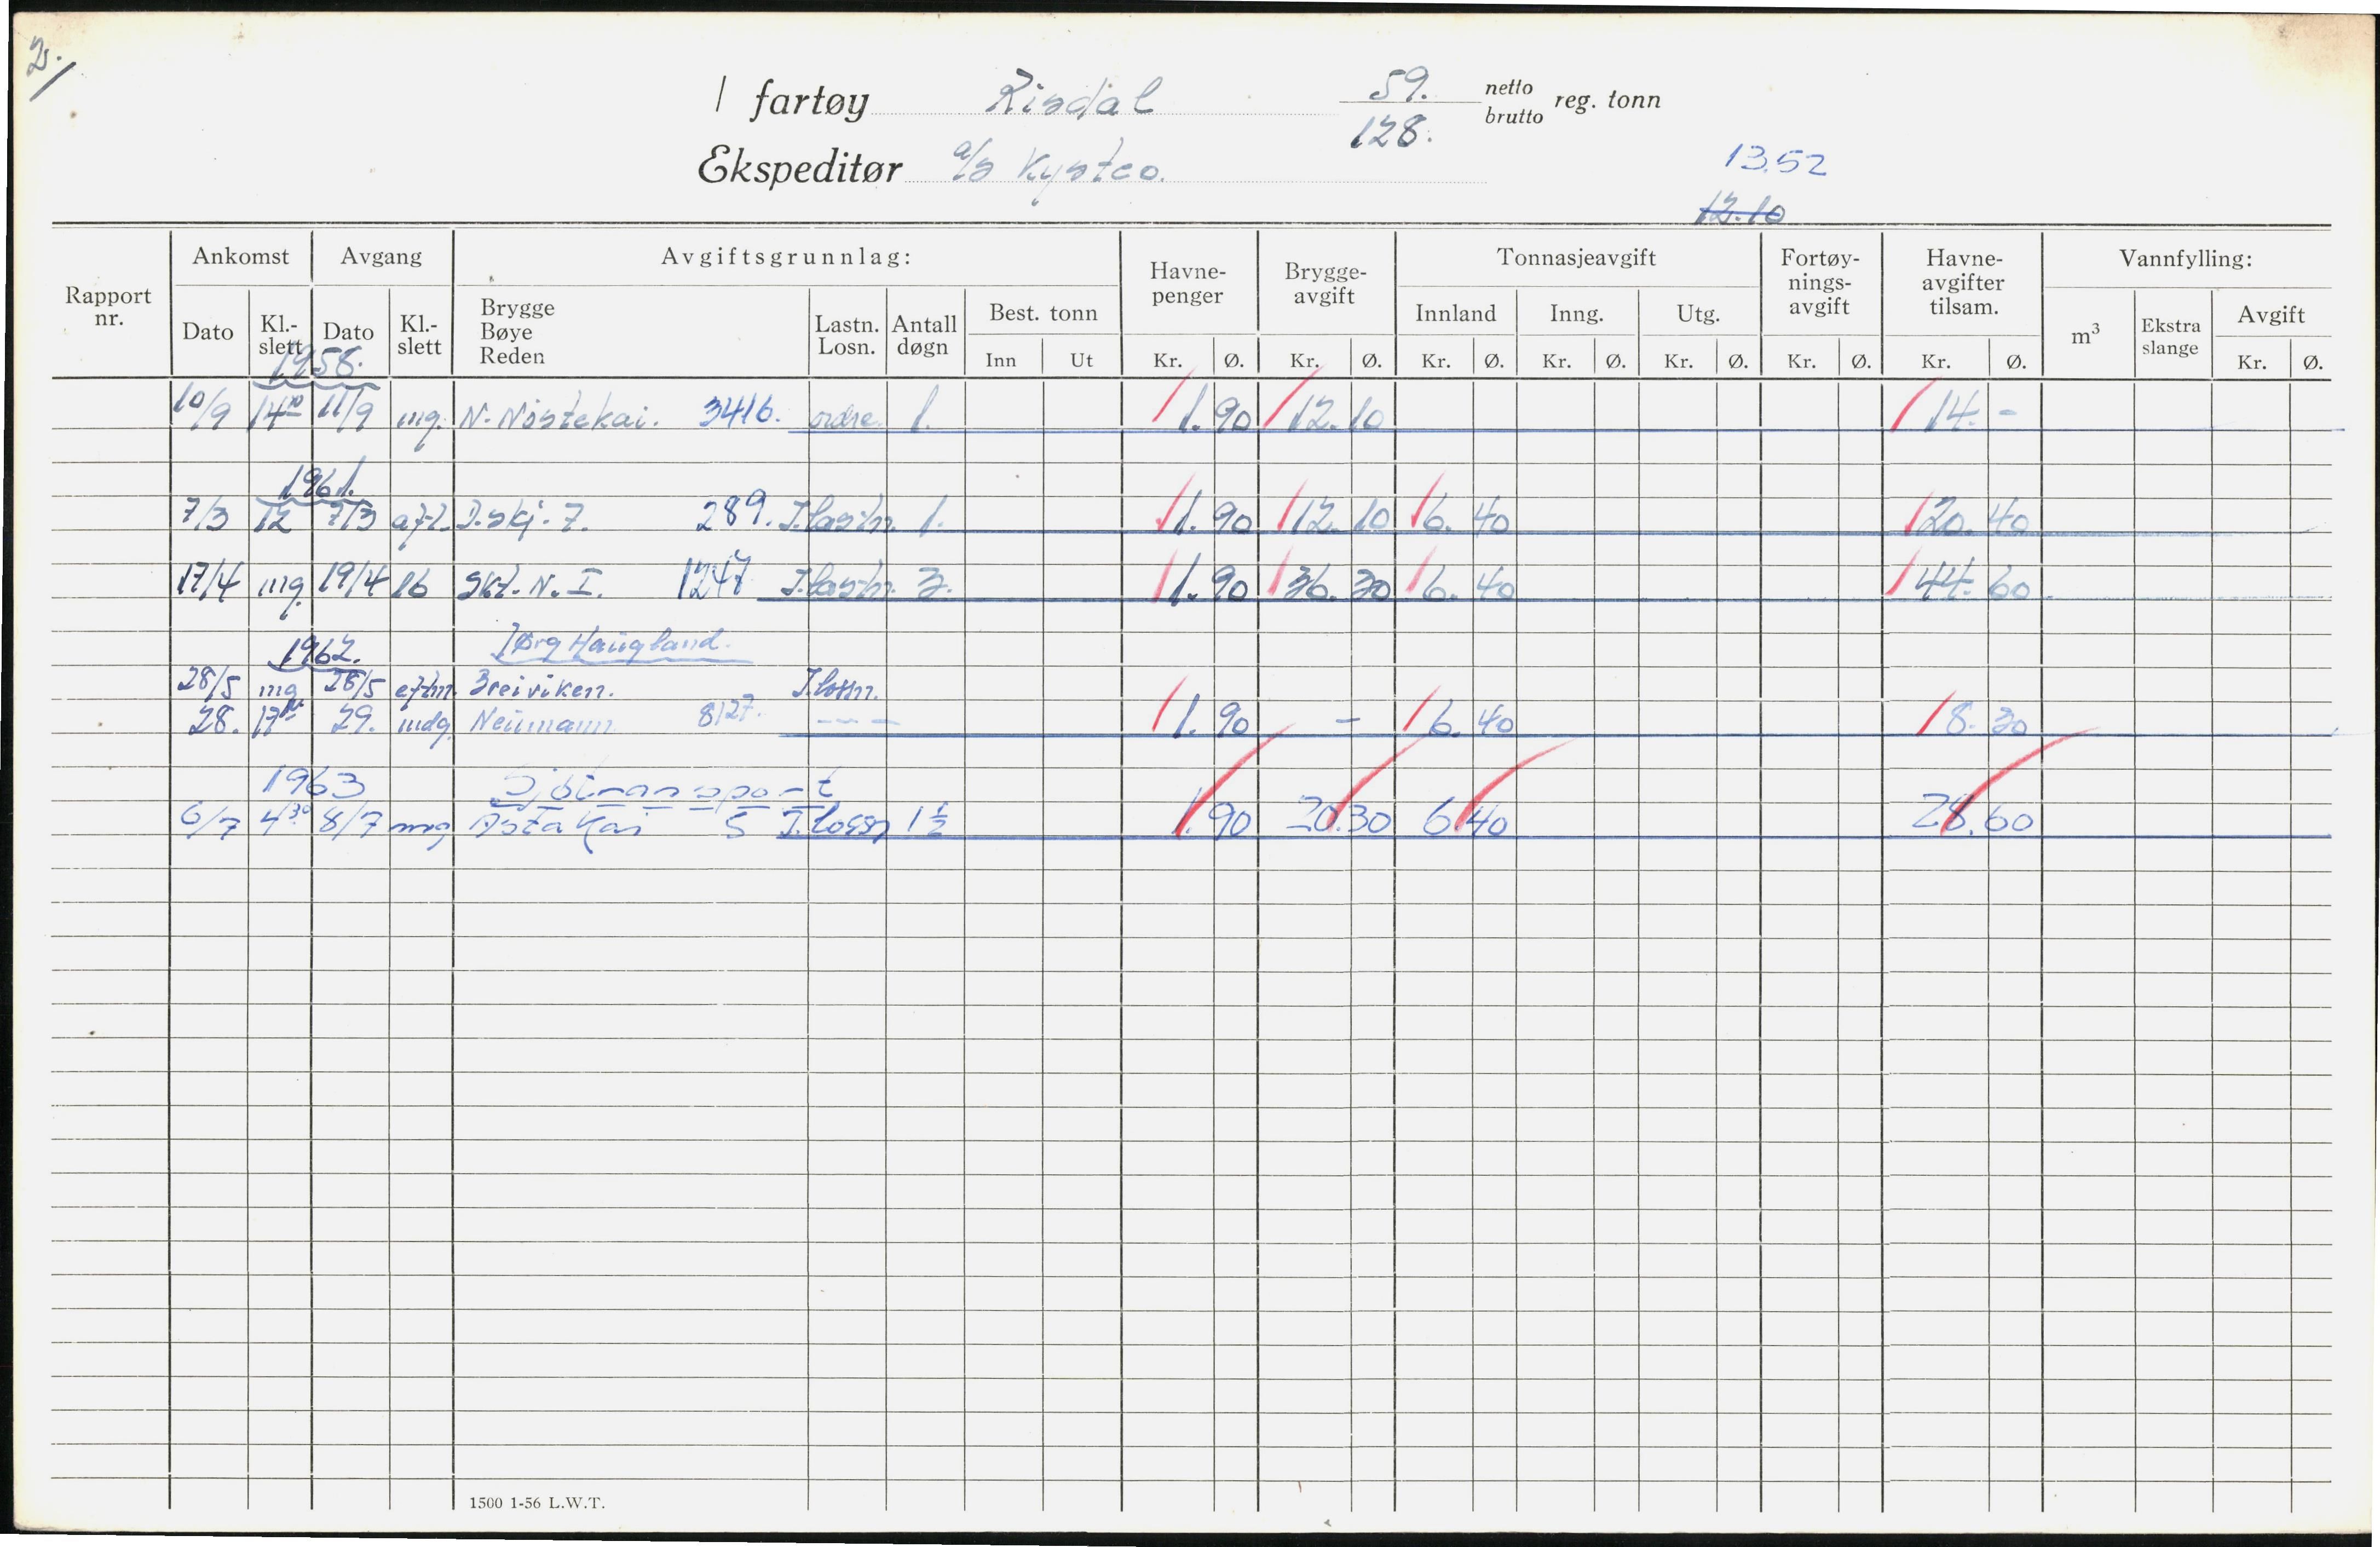 2.
/ fartøy Risdal 59. netto reg. tonn
128. brutto
Ekspeditør a/s Kystco.
13.52
12.10
Rapport nr. Ankomst Avgang Avgiftsgrunnlag: Havne-penger Brygge-avgift Tonnasjeavgift Fortøy-nings-avgift Havne-avgifter tilsam. Vannfylling:
Dato Kl.-slett Dato Kl.-slett Brygge Bøye Reden Lastn. Losn. Antall døgn Best. tonn Innland Inng. Utg. m3 Ekstra slange Avgift
Inn Ut Kr. Ø. Kr. Ø. Kr. Ø. Kr. Ø. Kr. Ø. Kr. Ø. Kr. Ø. Kr. Ø.
1958.
10/9 14 11/9 mg. N. Nøstekai. 3416. ordre. 1. 1.90 12.10 14.-
1961.
7/3 12 7/3 D.skj. 7. 289. I.lastn. 1. 1.90 12.10 6.40 20.40
17/4 mg. 19/4 16 Skt. N. I. 1247 I.lastn. 3. 1.90 36.30 6.40 44.60
1962. Haugland.
28/5 mg 28/5 eftm. Breiviken. I.lossn.
28. 17 29. mdg. Neumann 8127. --- 1.90 - 6.40 8.30
1963 Sjøtransport
6/7 4 30 8/7 mrg Kai 5 I.lossn 1 1/2 1.90 20.30 6.40 28.60
1500 1-56 L.W.T.